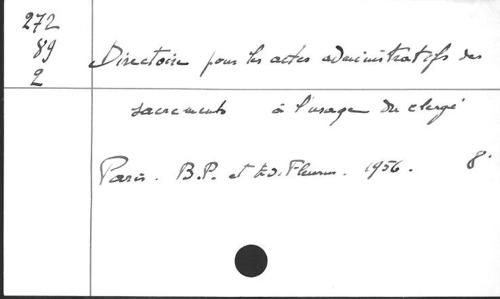 272
89
2
Directoire pour les actes administratifs des
sacrements à l'usage du clergé
Paris. B.P. et Ed. Fleurus. 1956. 8°